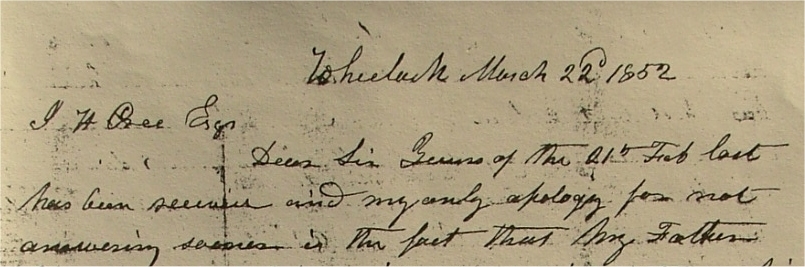 Wheelock March 22d 1852
J H Esqr
Dear Sir Yours of the 21st Feb last
has been received and my only apology for not
answering sooner is the fact that my Father